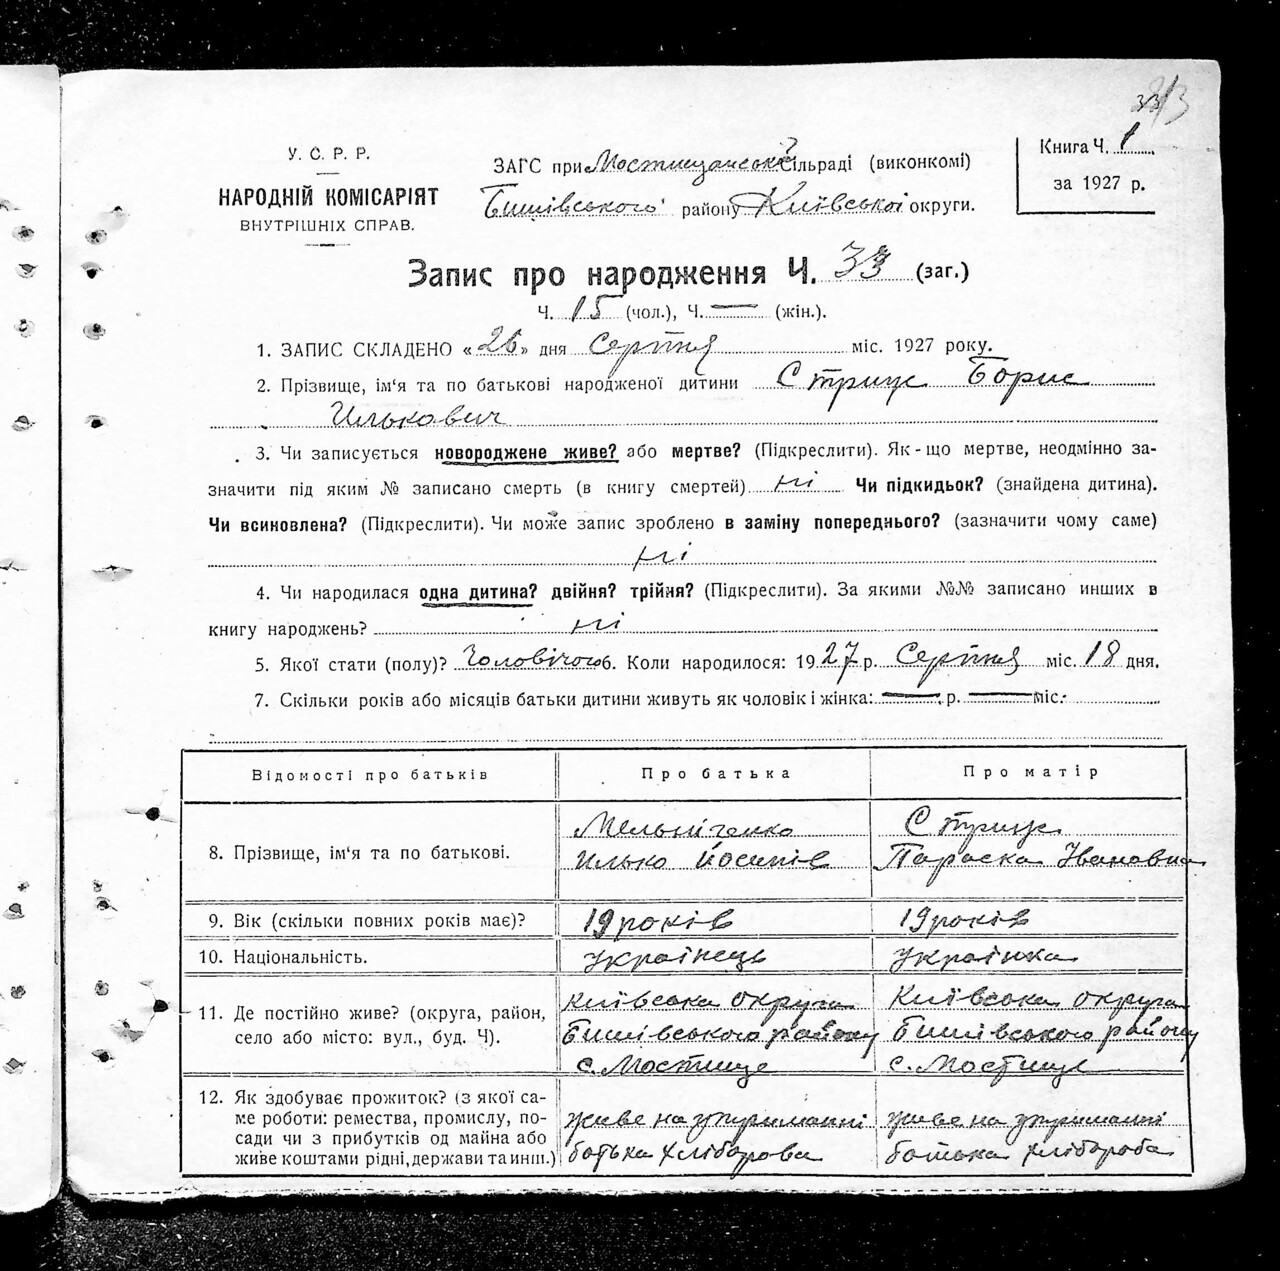 33
У. С. Р. Р.
НАРОДНІЙ КОМІСАРІЯТ
ВНУТРІШНІХ СПРАВ.
ЗАГС при Мостищанській сільраді (виконкомі)
Бишівського району Київської округи.
Книга Ч. 1
за 1927 р.
Запис про народження Ч. 33 (заг.)
Ч. 15 (чол.), Ч. — (жін.).
1. ЗАПИС СКЛАДЕНО «26» дня Серпня міс. 1927 року.
2. Прізвище, ім'я та по батькові народженої дитини Стриж Борис
Илькович
3. Чи записується новороджене живе? або мертве? (Підкреслити). Як-що мертве, неодмінно за-
значити під яким № записано смерть (в книгу смертей) ні Чи підкидьок? (знайдена дитина).
Чи всиновлена? (Підкреслити). Чи може запис зроблено в заміну попереднього? (зазначити чому саме)
ні
4. Чи народилася одна дитина? двійня? трійня? (Підкреслити). За якими №№ записано инших в
книгу народжень? ні
5. Якої стати (полу)? Чоловічого 6. Коли народилося: 1927 р. Серпня міс. 18 дня.
7. Скільки років або місяців батьки дитини живуть як чоловік і жінка: — р. — міс.
Відомості про батьків Про батька Про матір
8. Прізвище, ім'я та по батькові.
Мельніченко
Илько Йосипів
Стриж
Параска Івановна
9. Вік (скільки повних років має)? 19 років 19 років
10. Національність. Українець Українка
11. Де постійно живе? (округа, район,
село або місто: вул., буд. Ч).
Київська округа
Бишівського району
с. Мостище
Київська округа
Бишівського району
с. Мостище
12. Як здобуває прожиток? (з якої са-
ме роботи: ремества, промислу, по-
сади чи з прибутків од майна або
живе коштами рідні, держави та инш.)
живе на утриманні
батька хлібороба
живе на утриманні
батька хлібороба